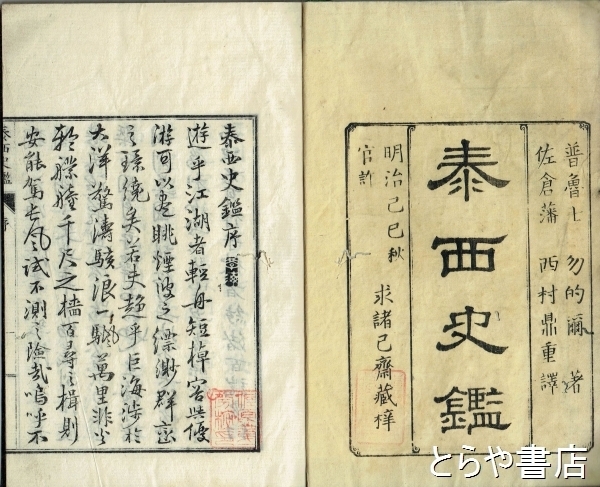 普魯士 勿的爾 著
佐倉藩 西村鼎重譯
泰西史鑑
明治己巳秋 求諸己齋藏梓
官許
泰西史鑑序
遊乎江湖者輕舟短棹容與優
游可以盡眺煙波之縹渺群巒
之環繞矣若夫超乎巨海涉於
大洋驚濤駭浪一颿萬里非夫
艨艟千尺之檣百尋之楫則
安能駕長風試不測之險哉嗚呼不
泰西史鑑 序
とらや書店